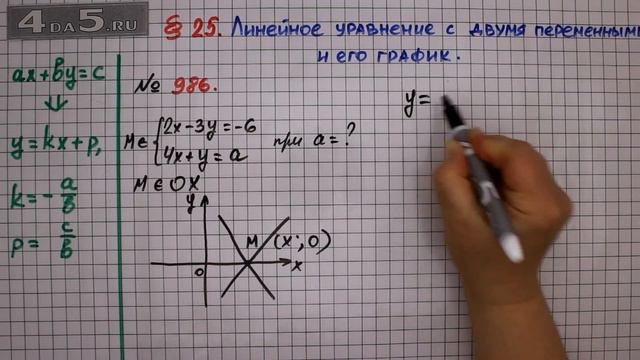 4DA5.RU
§ 25. Линейное уравнение с двумя переменными
и его график.
ax+by=c
y=kx+p,
k=-a/b
p=c/b
№ 986.
M∈ {2x-3y=-6
4x+y=a при a=?
M∈OX
y
M (x; 0)
0 x
y=